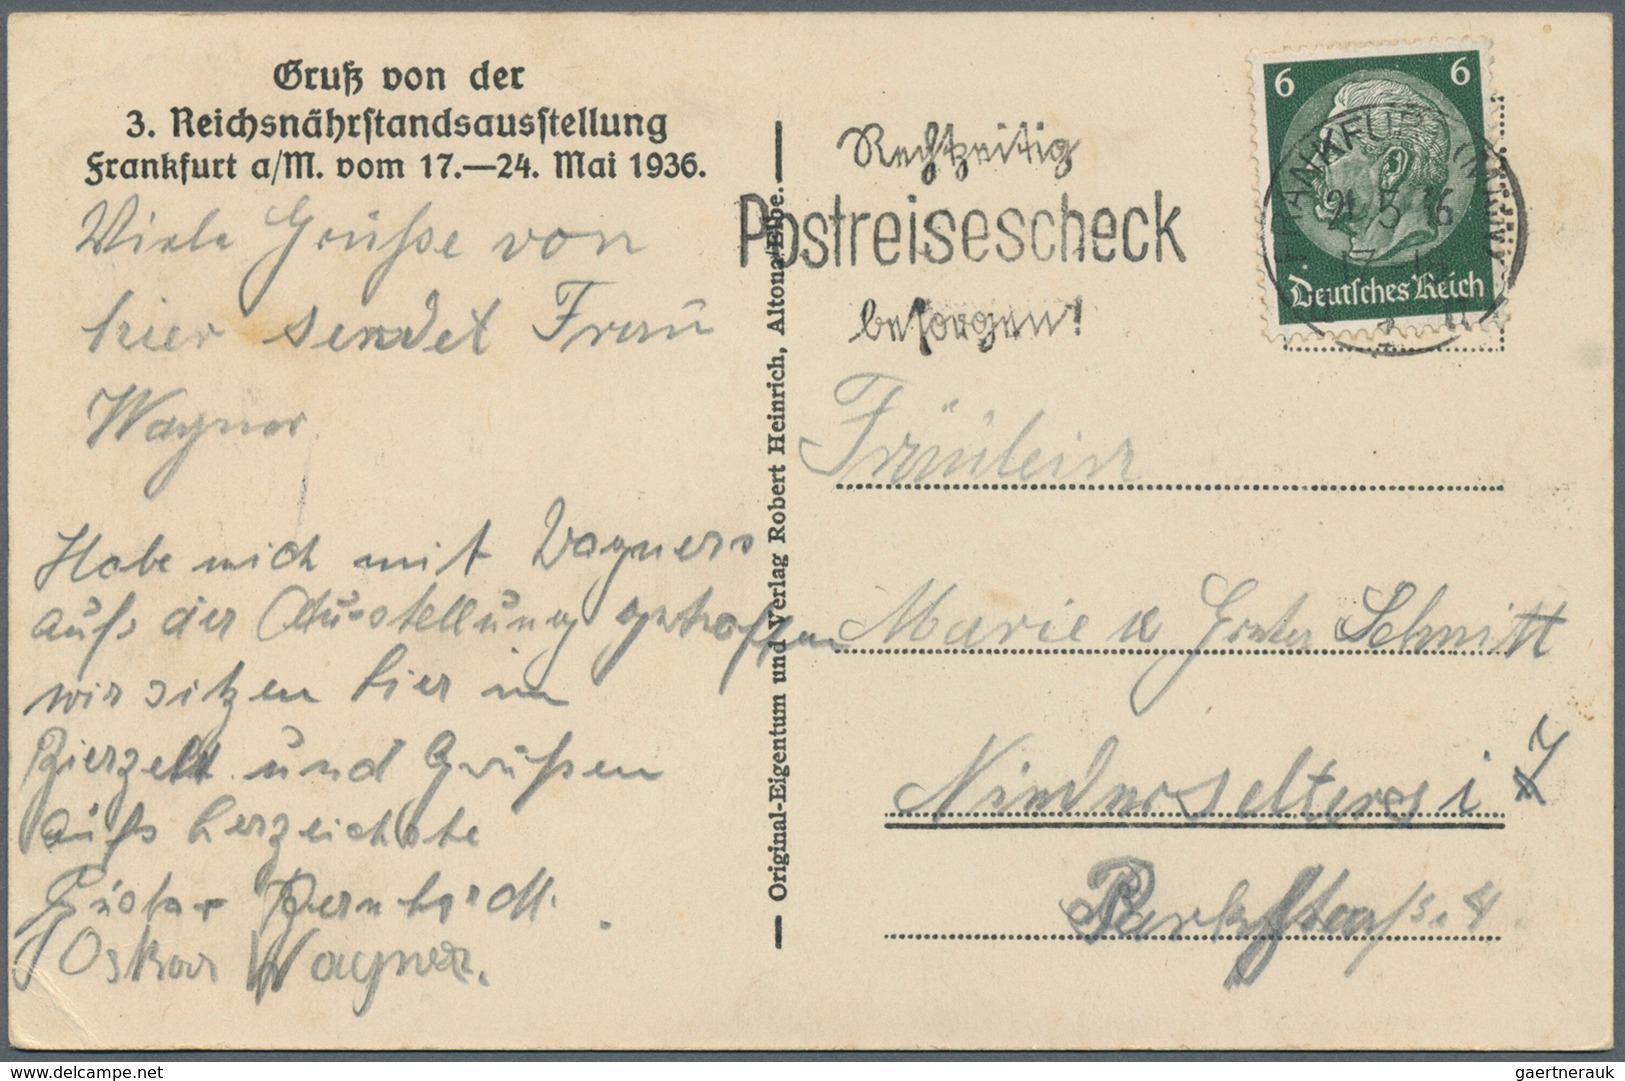 Gruß von der
3. Reichsnährstandsausstellung
Frankfurt a/M. vom 17.—24. Mai 1936.
Viele Grüße von
hier sendet Frau
Wagner.
Habe mich mit Wagners
aufs der Ausstellung getroffen
wir sitzen hier im
Bierzelt und Grüßen
aufs herzlichste
Bernhardt.
Oskar Wagner.
— Original-Eigentum und Verlag Robert Heinrich, Altona/Elbe. —
Rechtzeitig
Postreisescheck
besorgen!
6 6
FRANKFURT (MAIN)
21 5 36
Deutsches Reich
Fräulein
Marie u Schmitt
Niederselters i T
Parkstraße. 4
delcampe.net
gaertnerauk